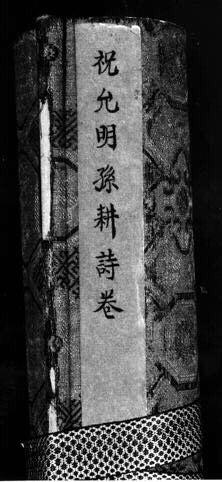 祝允明孫耕詩卷